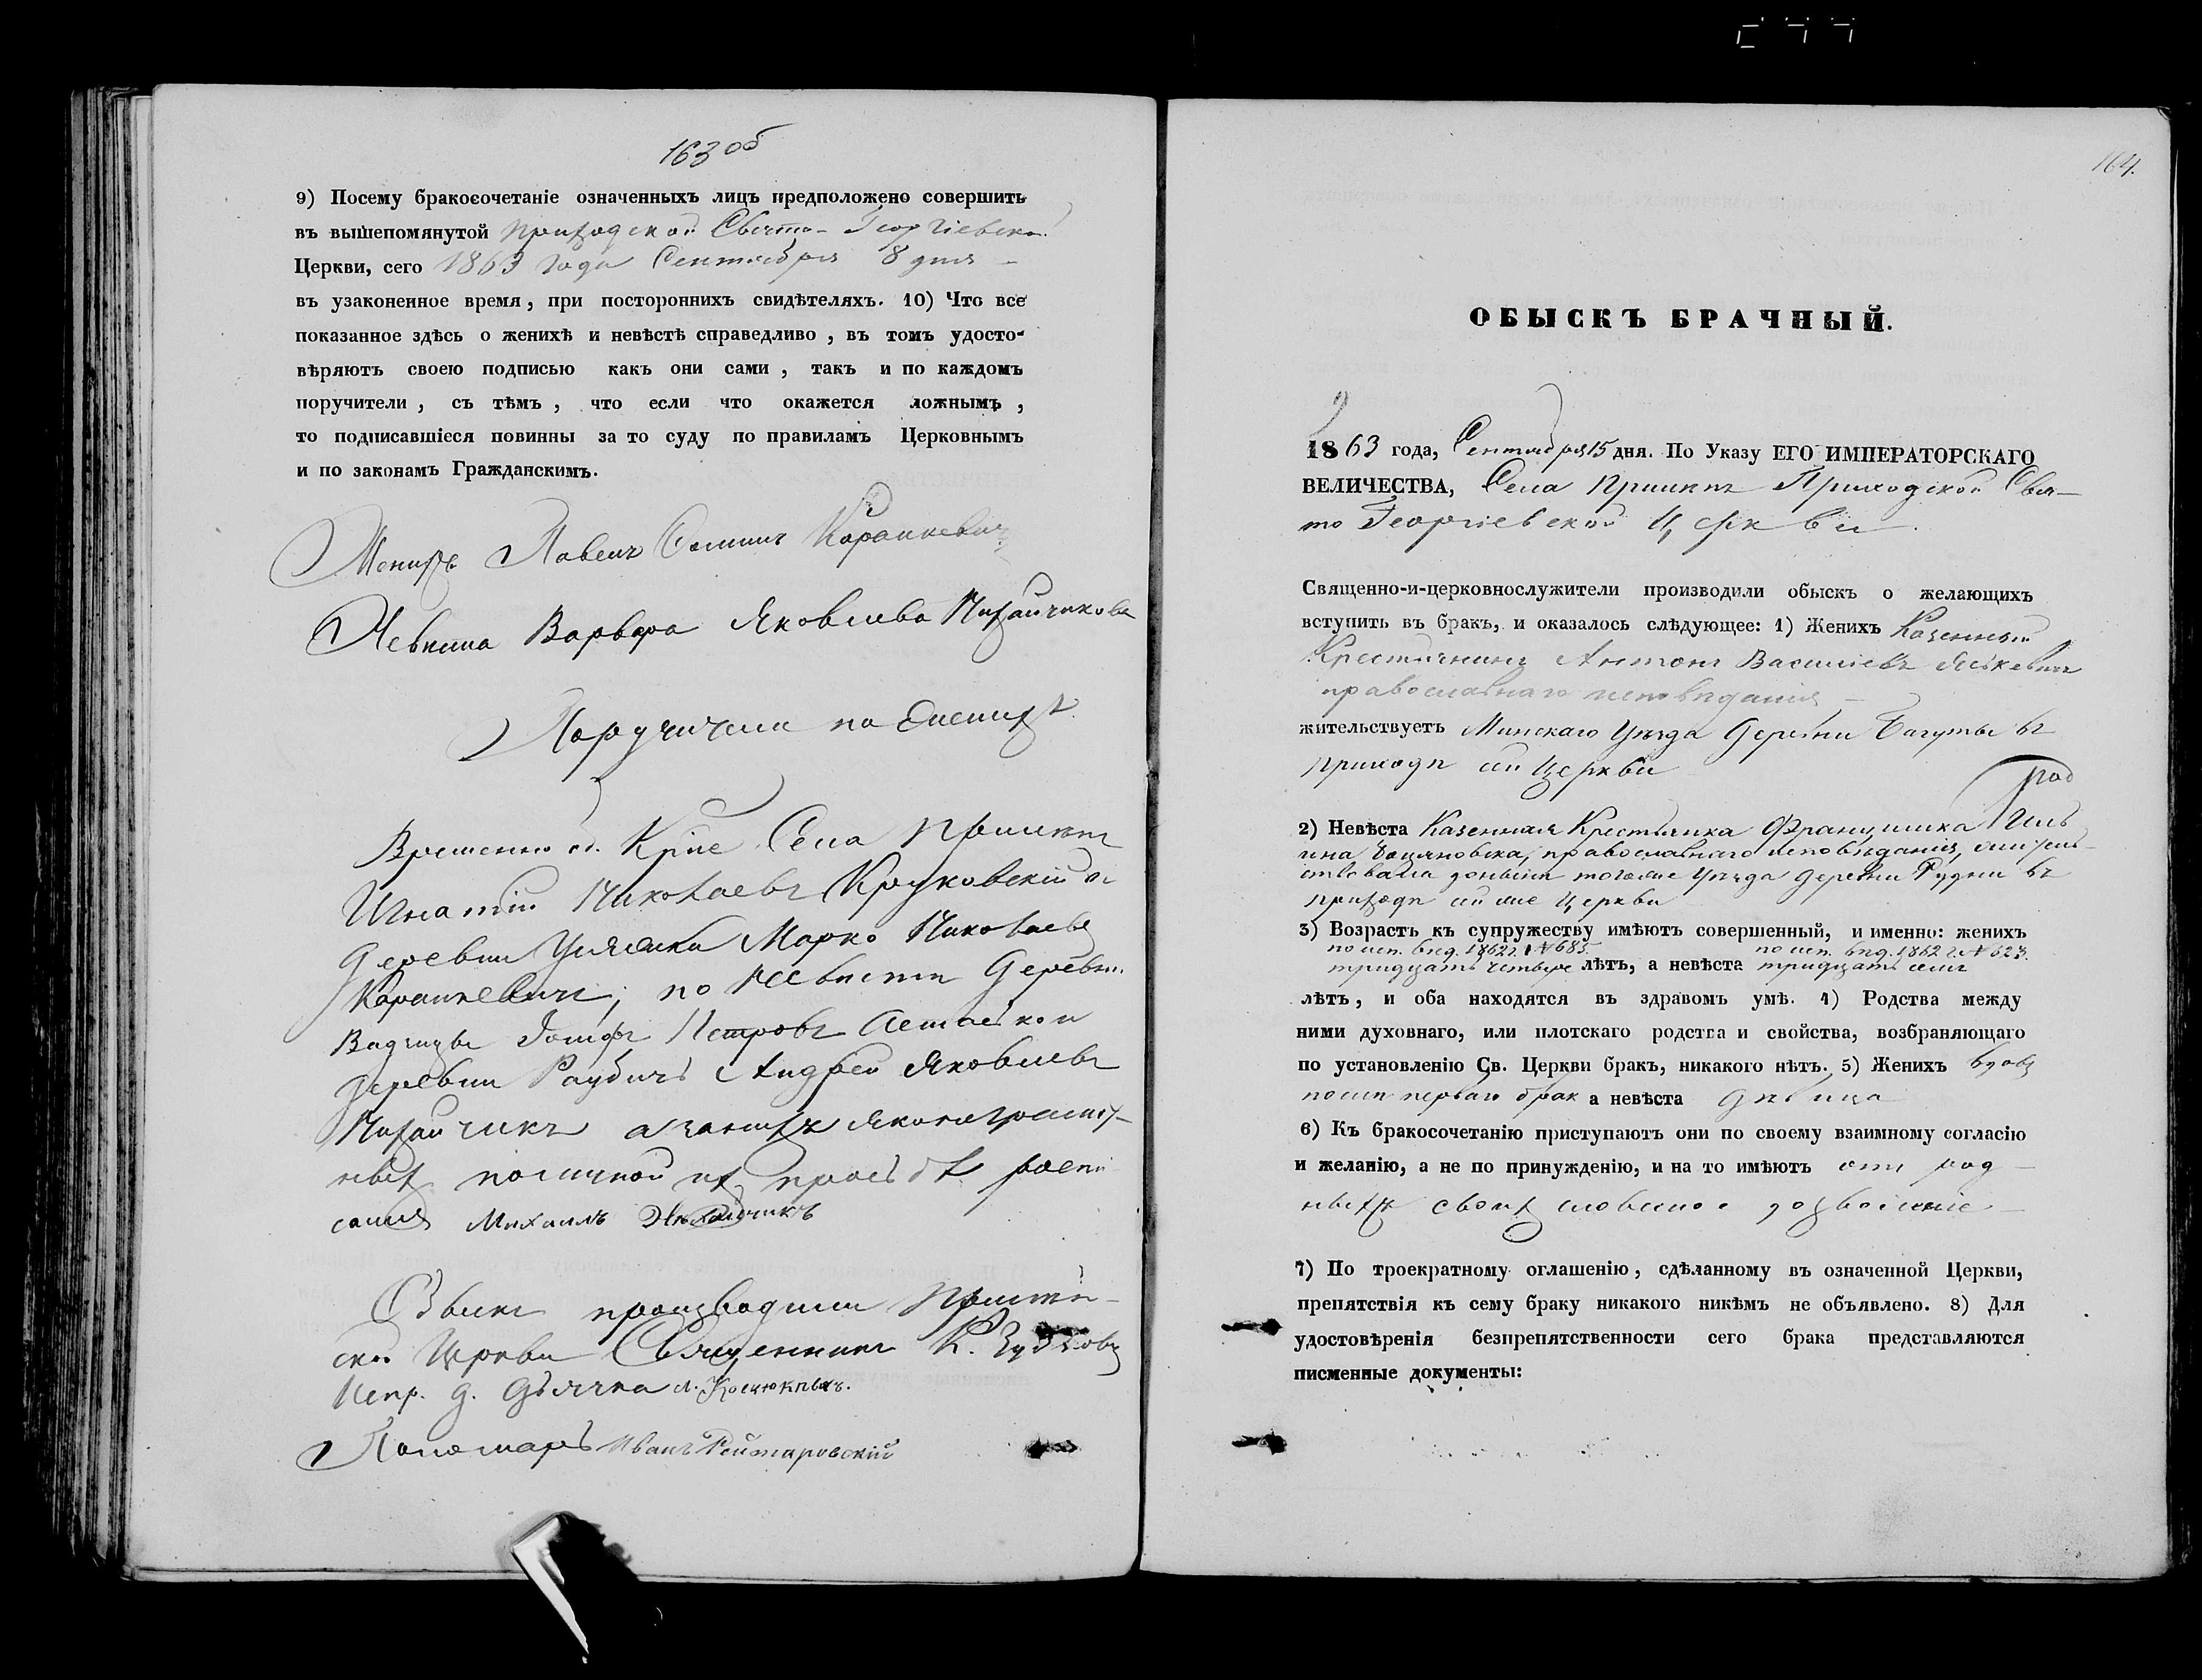 163 об
9) Посему бракосочетаніе означенныхъ лицъ предположено совершить
въ вышепомянутой приходской Свято- Георгіевской
Церкви, сего 1863 года Сентября 8 дня -
въ узаконенное время, при постороннихъ свидѣтеляхъ. 10) Что все
показанное здѣсь о женихѣ и невѣстѣ справедливо, въ томъ удосто-
вѣряютъ своею подписью какъ они сами, такъ и по каждомъ
поручители, съ тѣмъ, что если что окажется ложнымъ,
то подписавшіеся повинны за то суду по правиламъ Церковнымъ
и по законамъ Гражданскимъ.
Женихъ Павелъ Караткевичъ
Невѣста Варвара Яковлева Михайчикова
Поручители по женихѣ
Временно об. Кр͠не Села Прилѣпъ
Игнатій Николаевъ Круковскій и
деревни Марко Николаевъ
Караткевичъ, по невѣсте деревни
Іосифъ Петровъ Асташкои
деревни Раубичъ Андрей Яковлевъ
а за нихъ яко неграмот-
ныхъ по личной ихъ просьбѣ роспи
сался Михаилъ
Обыскъ производили Прилѣп-
ской Церкви Священникъ К.
Испр. д. дьячка
Пономарь Иванъ Рейтаровскій
164.
ОБЫСКЪ БРАЧНЫЙ.
1863 года, Сентября 15 дня. По Указу ЕГО ИМПЕРАТОРСКАГО
ВЕЛИЧЕСТВА, Села Прилѣпъ Приходской Свя-
то Георгіевской Церкви.
Священно-и-церковнослужители производили обыскъ о желающихъ
вступить въ бракъ, и оказалось слѣдующее: 1) Женихъ Казенный
Крестьянинъ Антонъ Васильевъ Яськевичъ
православнаго исповѣданія -
жительствуетъ Минскаго Уѣзда деревни Багуты въ
приходѣ сей Церкви
2) Невѣста Казенная Крестьянка Францишка
православнаго исповѣданія, жител-
ствовала донынѣ тогоже Уѣзда деревни Рудни въ
приходѣ сей же Церкви
3) Возрастъ къ супружеству имѣютъ совершенный, и именно: женихъ
по исп. вѣд. 1862 г. № 685. по исп. вѣд. 1862 г. № 623.
тридцать четыре лѣтъ, а невѣста тридцать семь
лѣтъ, и оба находятся въ здравомъ умѣ. 4) Родства между
ними духовнаго, или плотскаго родства и свойства, возбраняющаго
по установленію Св. Церкви бракъ, никакого нѣтъ. 5) Женихъ вдовъ
послѣ перваго брак а невѣста дѣвица
6) Къ бракосочетанію приступаютъ они по своему взаимному согласію
и желанію, а не по принужденію, и на то имѣютъ отъ род-
ныхъ своихъ словесное дозволеніе -
7) По троекратному оглашенію, сдѣланному въ означенной Церкви,
препятствія къ сему браку никакого никѣмъ не объявлено. 8) Для
удостовѣренія безпрепятственности сего брака представляются
писменные документы: